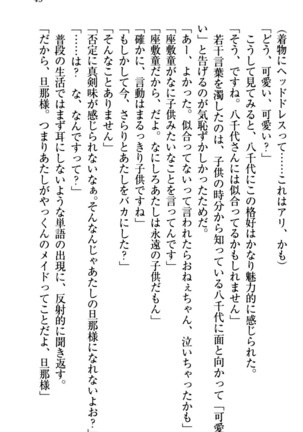 (着物にヘッドドレスって……これはアリ、かも)
「どう、可愛い、可愛い?」
こうして見てみると、八千代にこの格好はかなり魅力的に感じられた。
「そう、ですね。八千代さんには似合ってるかもしれません」
若干言葉を濁したのは、子供の時分から知っている八千代に面と向かって「可愛
い」と告げるのが気恥ずかしかったためだ。
「あー、よかった。似合ってないって言われたらおねぇちゃん、泣いちゃったかも」
「座敷童がなに子供みたいなことを言ってんです」
「座敷童だからだよ。なにしろあたしは永遠の子供だもん」
「確かに、言動はまるっきり子供ですね」
「もしかして今、さらりとあたしをバカにした?」
「そんなことありません」
「否定に真剣味が感じられないなぁ。そんなんじゃあたしの旦那様になれないよお?」
「……は? な、なんですって?」
普段の生活ではまず耳にしないような単語の出現に、反射的に聞き返す。
「だから、旦那様。つまりあたしがやっくんのメイドってことだよ、旦那様」